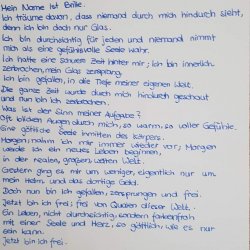 Mein Name ist Brille
Ich träume davon, dass niemand durch mich hindurch sieht,
denn ich bin doch nur Glas.
Ich bin durchsichtig für jeden und niemand nimmt
mich als eine gefühlsvolle Seele wahr.
Ich hatte eine schwere Zeit hinter mir; ich bin innerlich
zerbrochen, mein Glas zersprang.
Ich bin gefallen, in die Tiefe meiner eigenen Welt.
Die ganze Zeit wurde durch mich hindurch geschaut
und nun bin ich zerbrochen.
Was ist der Sinn meiner Aufgabe?
Oft blicken Augen durch mich, so warm, so voller Gefühle.
Eine göttliche Seele inmitten des Körpers.
Morgen; nahm ich mir immer wieder vor; Morgen
werde ich ein neues Leben beginnen,
in der realen, großen, weiten Welt.
Gestern ging es mir um weniger, eigentlich nur um
mein Heim und das dortige Geld.
Doch nun bin ich gefallen, zersprungen und frei.
Jetzt bin ich frei; frei von Qualen dieser Welt.
Ein Leben, nicht durchsichtig, sondern farbenfroh
mit einer Seele und Herz, so göttlich, wie es nur
sein kann.
Jetzt bin ich frei.